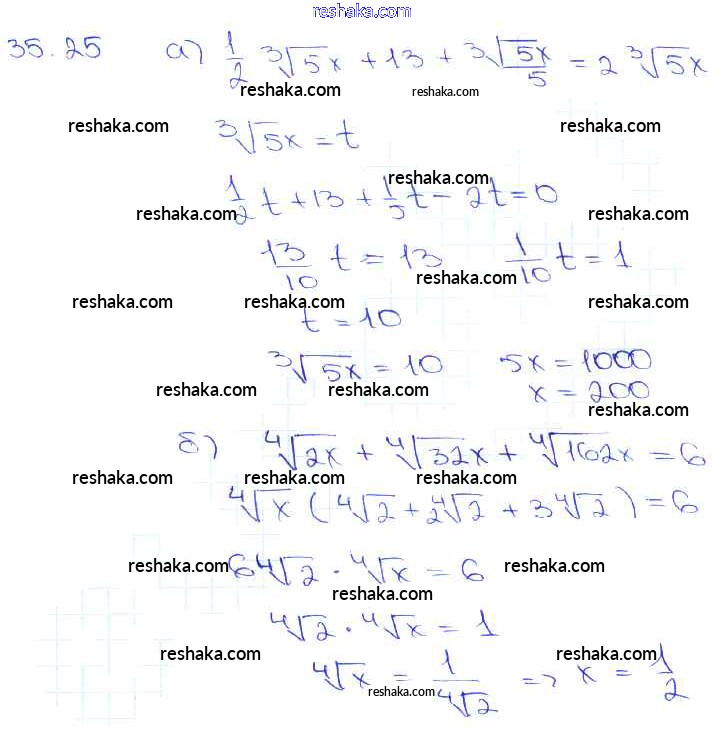 reshaka.com
35.25 а) 1/2 ∛5x + 13 + ∛5x/5 = 2 ∛5x
reshaka.com reshaka.com
reshaka.com ∛5x = t reshaka.com
reshaka.com
1/2 t + 13 + 1/5 t - 2t = 0
reshaka.com reshaka.com
13/10 t = 13 1/10 t = 1
reshaka.com
reshaka.com reshaka.com reshaka.com
t = 10
∛5x = 10 5x = 1000
reshaka.com reshaka.com x = 200
reshaka.com
б) ∜2x + ∜32x + ∜162x = 6
reshaka.com reshaka.com reshaka.com
∜x (∜2 + 2∜2 + 3∜2) = 6
reshaka.com reshaka.com reshaka.com
6∜2 · ∜x = 6
reshaka.com
∜2 · ∜x = 1
reshaka.com reshaka.com
∜x = 1/∜2 => x = 1/2
reshaka.com